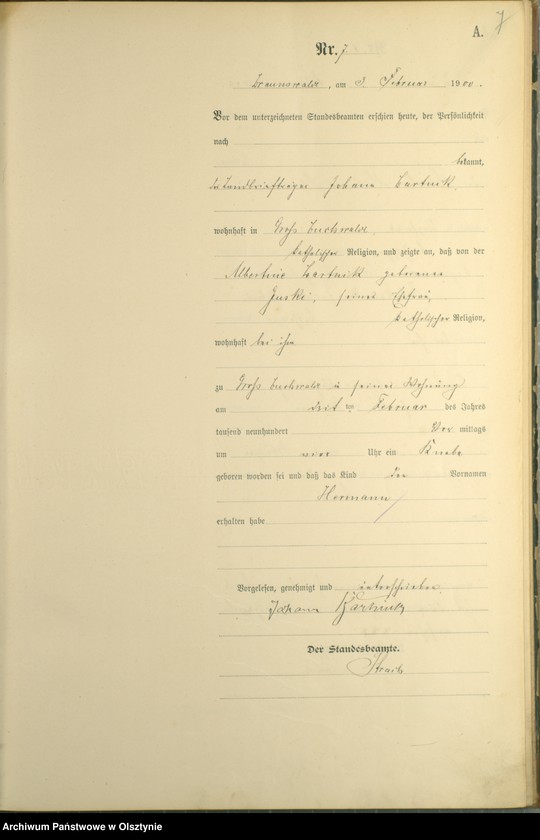 7
A.
Nr. 7
Braunswalde, am 3. Februar 1900.
Vor dem unterzeichneten Standesbeamten erschien heute, der Persönlichkeit
nach
bekannt,
der Landbriefträger Johann Bartnik,
wohnhaft in Groß Buchwalde,
katholischer Religion, und zeigte an, daß von der
Albertine Bartnik geborenen
seiner Ehefrau,
katholischer Religion,
wohnhaft bei ihm
zu Groß Buchwalde in seiner Wohnung
am Februar des Jahres
tausend neunhundert Vor mittags
um Uhr ein Knabe
geboren worden sei und daß das Kind den Vornamen
Hermann
erhalten habe
Vorgelesen, genehmigt und unterschrieben
Johann Bartnick
Der Standesbeamte.
Archiwum Państwowe w Olsztynie